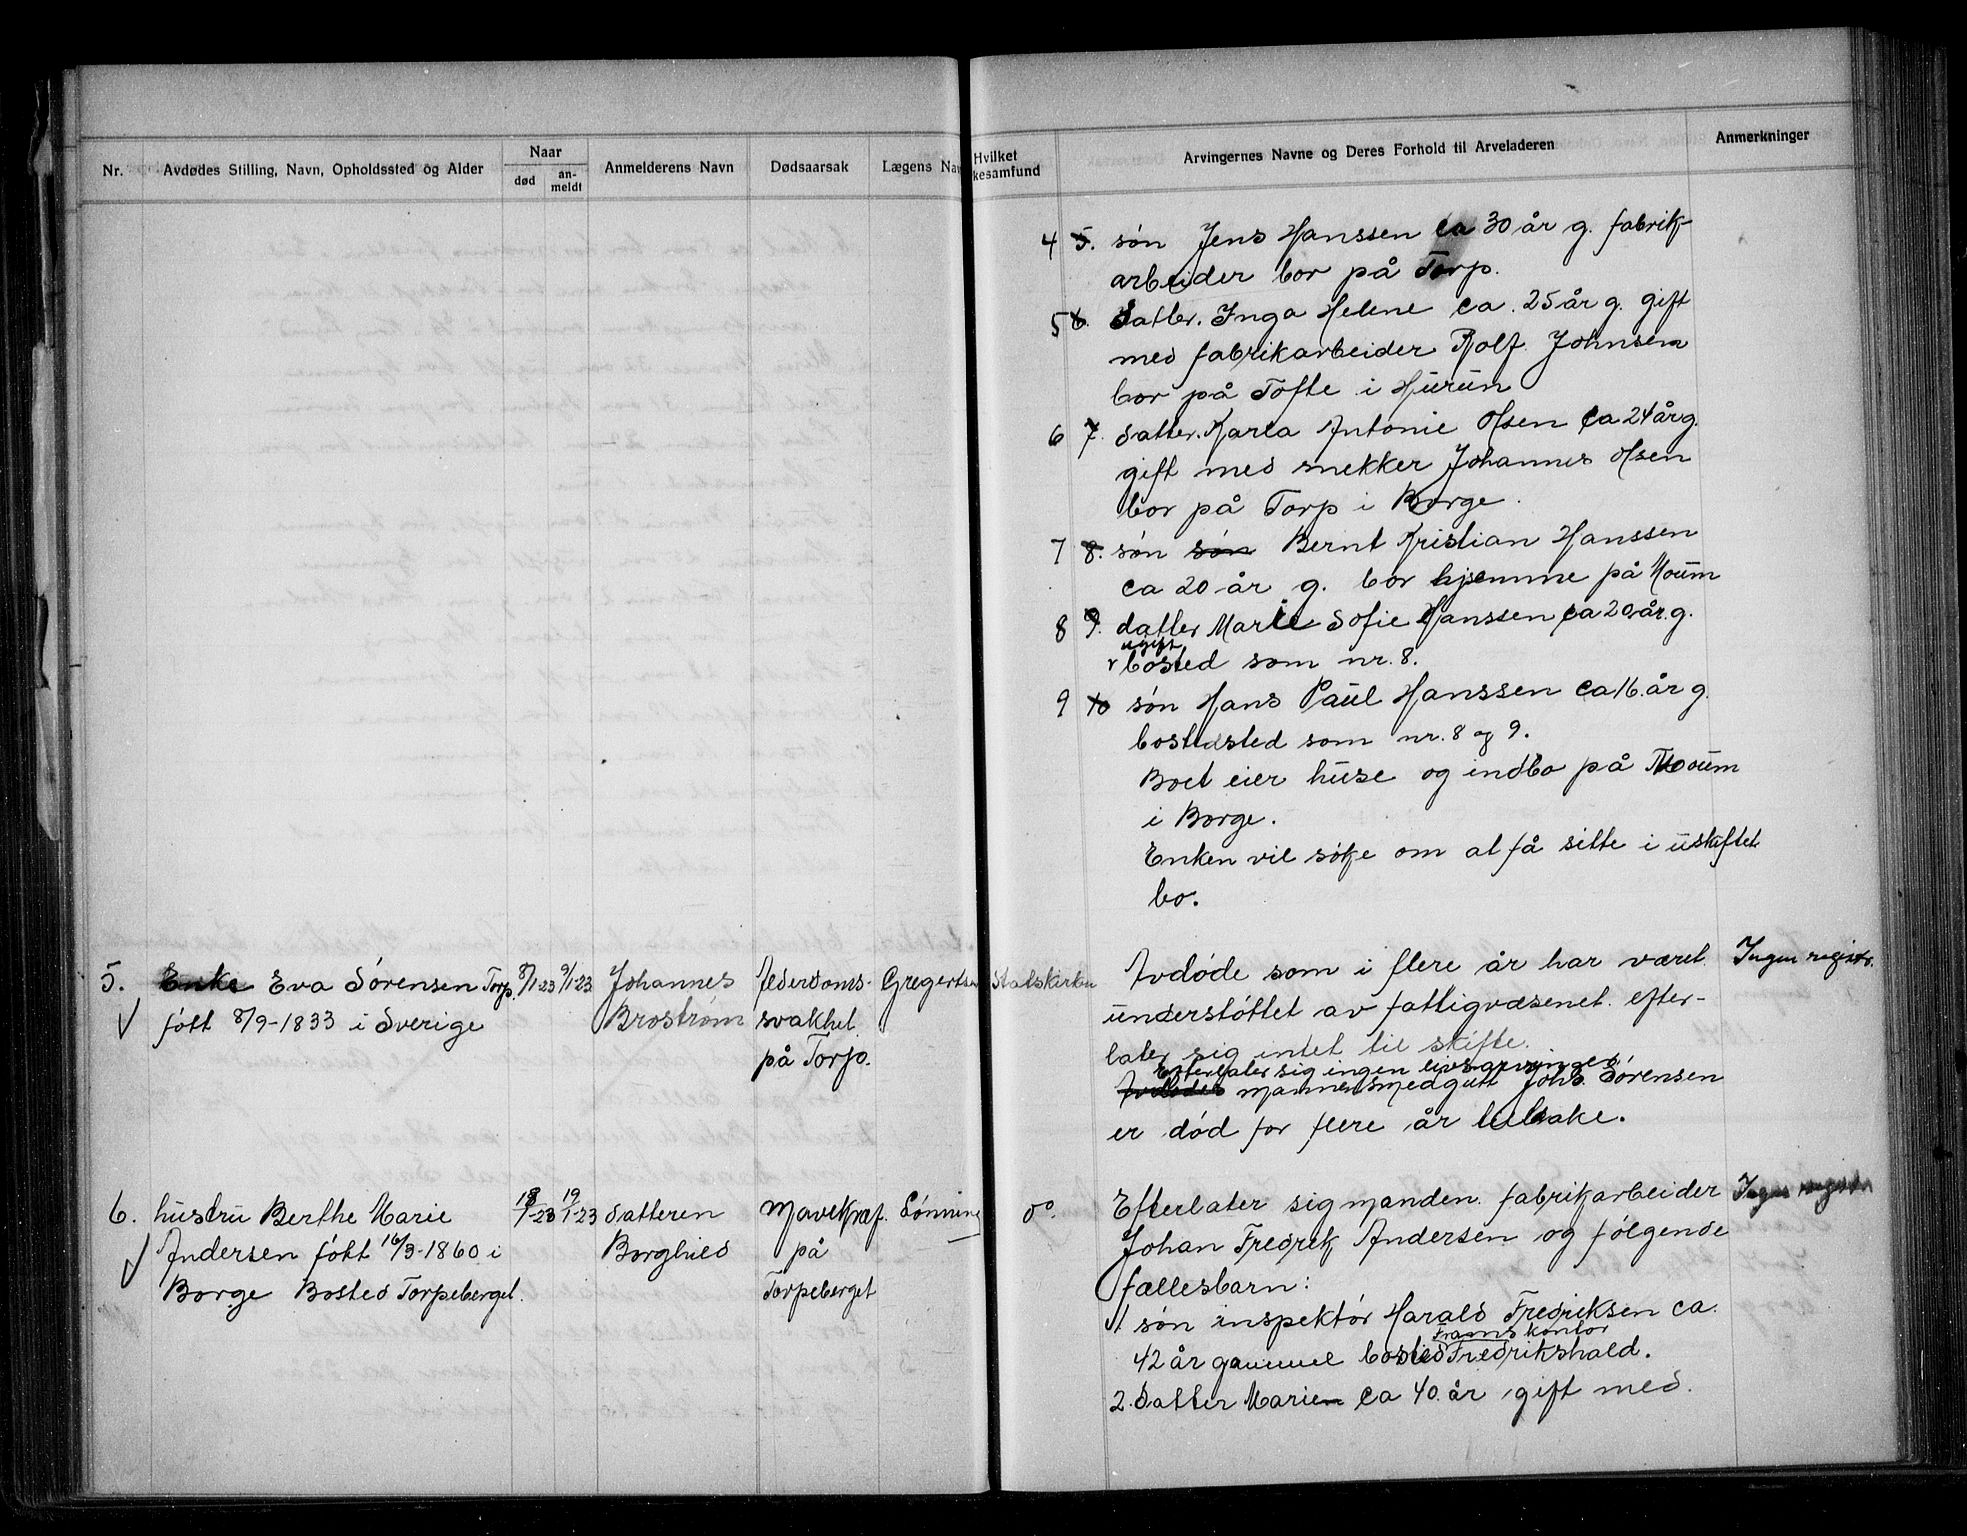 Nr.
Avdødes Stilling, Navn, Opholdssted og Alder
Naar
død
an-
meldt
Anmelderens Navn
Dødsaarsak
Lægens Nav
Hvilket
kesamfund
Arvingernes Navne og Deres Forhold til Arveladeren
Anmerkninger
4 5. søn Jens Hanssen ca 30 år g. fabrik-
arbeider bor på Torp.
5 6. Datter. Inga Helene ca. 25 år g. gift
med fabrikarbeider Rolf Johnsen
bor på Tofte i Hurum
6 7. datter. Karla Antonie Olsen ca 24 år g.
gift med snekker Johannes Olsen
bor på Torp i Borge.
7 8. søn søn Bernt Kristian Hanssen
ca 20 år g. bor hjemme på Moum
8 9. datter Marie Sofie Hanssen ca 20 år. g.
ugift
bosted som nr. 8.
9 10 søn Hans Paul Hanssen ca 16 år g.
bostedsted som nr. 8 og 9.
Boet eier huse og indbo på Moum
i Borge.
Enken vil søke om at få sitte i uskiftet
bo.
5. Enke Eva Sørensen Torp.
født 8/9-1833 i Sverige
8/1-23
9/1-23
Johannes
Broström
Alderdoms-
svakhet
på Torp.
Gregertsen
Statskirken
Avdøde som i flere år har været
understøttet av fattigvæsenet. efter-
later sig intet til skifte.
Efterlater sig ingen livsarvinger.
Avdødes mannen smedgutt Johs. Sørensen
er død for flere år tilbake.
Ingen registr.
6. hustru Berthe Marie
Andersen født 16/3-1860 i
Borge Bosted Torpeberget.
18/1-23
19/1-23
datteren
Borghild
Mavekræf.
på
Torpeberget
Lønning
do.
Efterlater sig manden. fabrikarbeider
Johan Fredrik Andersen og følgende
fællesbarn:
1. søn inspektør Harald Fredriksen ca.
Frams kontor
42 år gammel bosted Fredrikshald.
2. Datter Marien ca 40 år gift med.
Ingen registr.